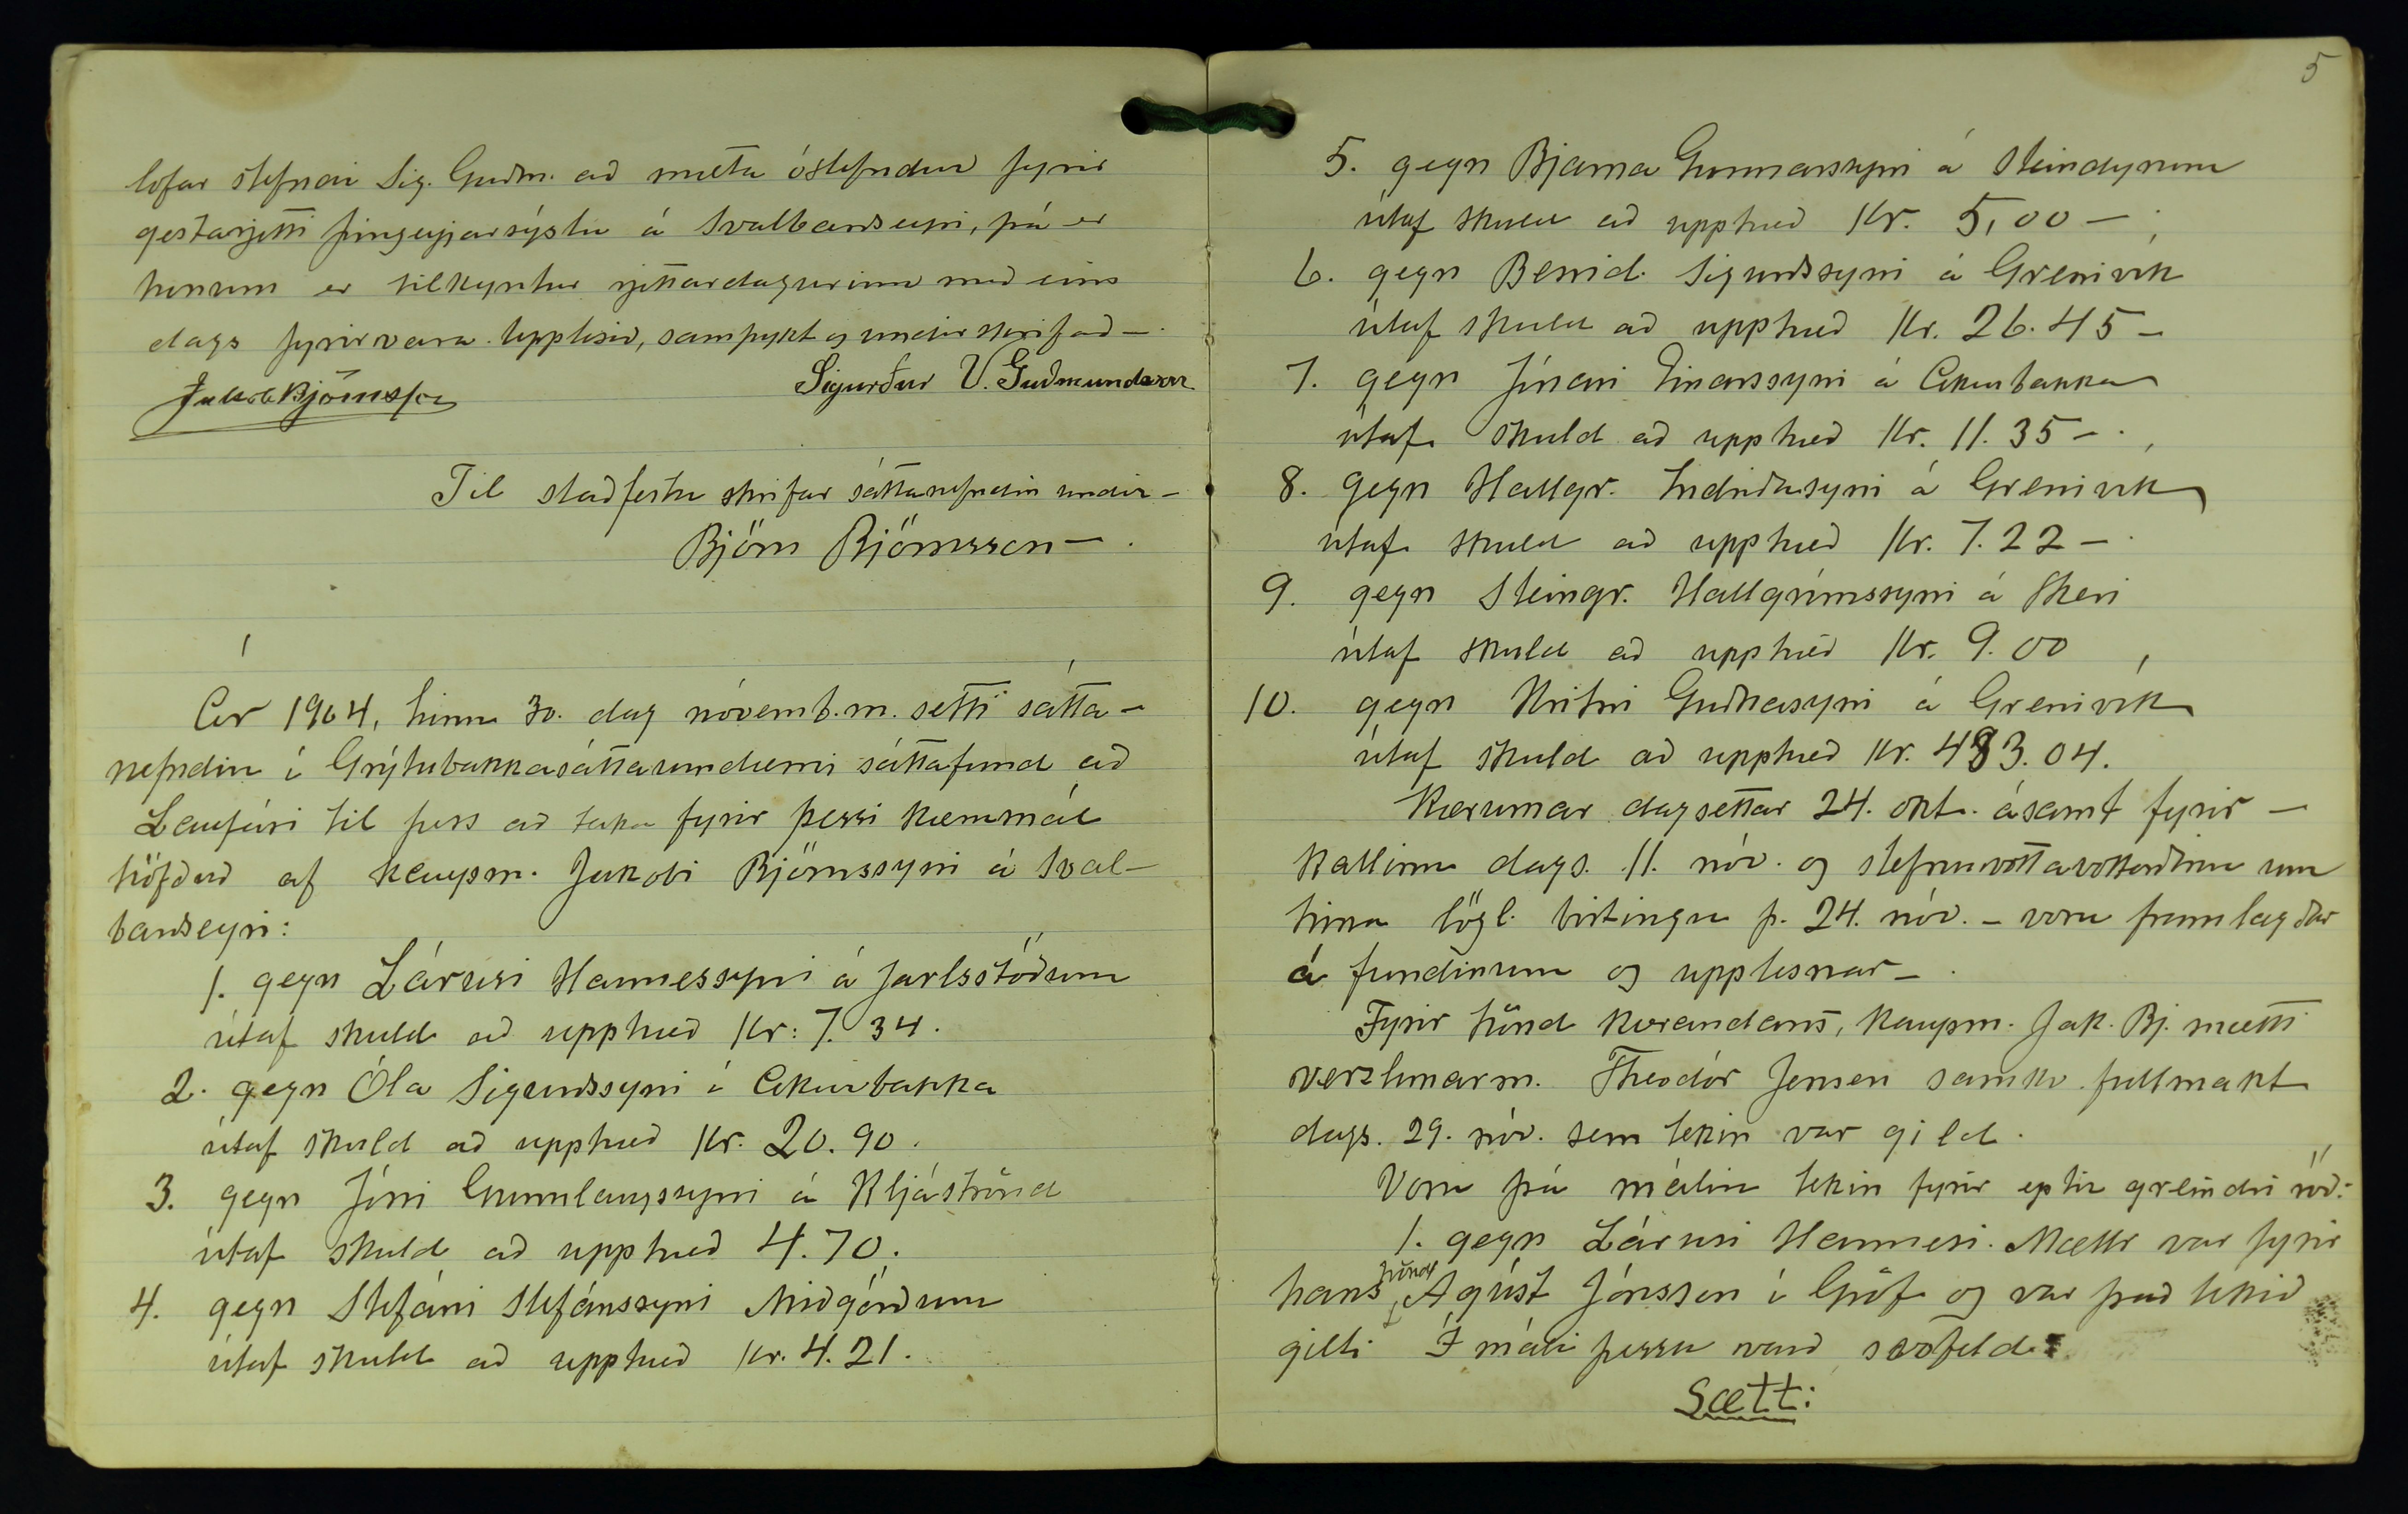 lofar stefndi Sig. Guðm. að mæta óstefndur fyrir
gestarjetti Þingeyjarsýslu á Svalbarðseyri, þá er
honum er tilkyntur rjettardagurinn með eins
dags fyrirvara. Upplesið, samþykt og undirskrifað –.
Jakob Björnsson Sigurður V. Guðmundsson
Til staðfestu skrifar sáttanefndin undir –
Björn Björnsson –.
Ár 1904, hinn 30. dag nóvemb.m. setti sátta-
nefndin í Grýtubakkasáttaumdæmi sáttafund að
Laufási til þess að taka fyrir þessi kærumál
höfðuð af kaupm. Jakobi Björnssyni á Sval-
barðseyri:
1. gegn Lárusi Hannessyni á Jarlsstöðum
útaf skuld að upphæð Kr: 7.34.
2. gegn Óla Sigurðssyni á Akurbakka
útaf skuld að upphæð Kr. 20.90.
3. gegn Jóni Gunnlaugssyni á Kljáströnd
útaf skuld að upphæð 4.70.
4. gegn Stefáni Stefánssyni Miðgörðum
útaf skuld að upphæð kr. 4.21.
5
5. gegn Bjarna Gunnarssyni á Steindyrum
útaf skuld að upphæð Kr. 5,00 –;
6. gegn Bened. Sigurðssyni á Grenivík
útaf skuld að upphæð Kr. 26.45 –
7. gegn Einarssyni á Akurbakka
útaf skuld að upphæð Kr. 11.35 –.
8. gegn Hallgr. Indriðasyni á Grenivík
útaf skuld að upphæð Kr. 7.22 –.
9. gegn Steingr. Hallgrímssyni á Skeri
útaf skuld að upphæð Kr. 9.00
10. gegn Guðnasyni á Grenivík
útaf skuld að upphæð kr. 483.04.
Kærurnar dagsettar 24. okt. ásamt fyrir –
kallinu dags. 11. nóv. og stefnuvottavottorðinu um
hina lögl. birtingu þ. 24. nóv. – voru framlagðar
á fundinum og upplesnar –.
Fyrir hönd kærandans, kaupm. Jak. Bj. mætti
verzlunarm. Theodór Jensen samkv. fullmakt
dags. 29. nóv. sem tekin var gild.
Voru þá málin tekin fyrir eptir greindri röð:
1. gegn Lárusi Hannessi. Mættr var fyrir
hans hönd Agúst Jónsson í Gröf og var það tekið
gilt. Í máli þessu varð svofeld:
Sætt: